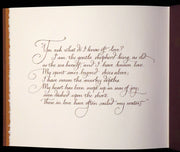 You ask what do I know of love?
I am the gentle shepherd king, as old
as the sea herself, and I have known love.
My spirit soars beyond
I have swum the murky depths
My heart has been swept up in seas of joy
dashed upon the shore.
There is love here often called my master.